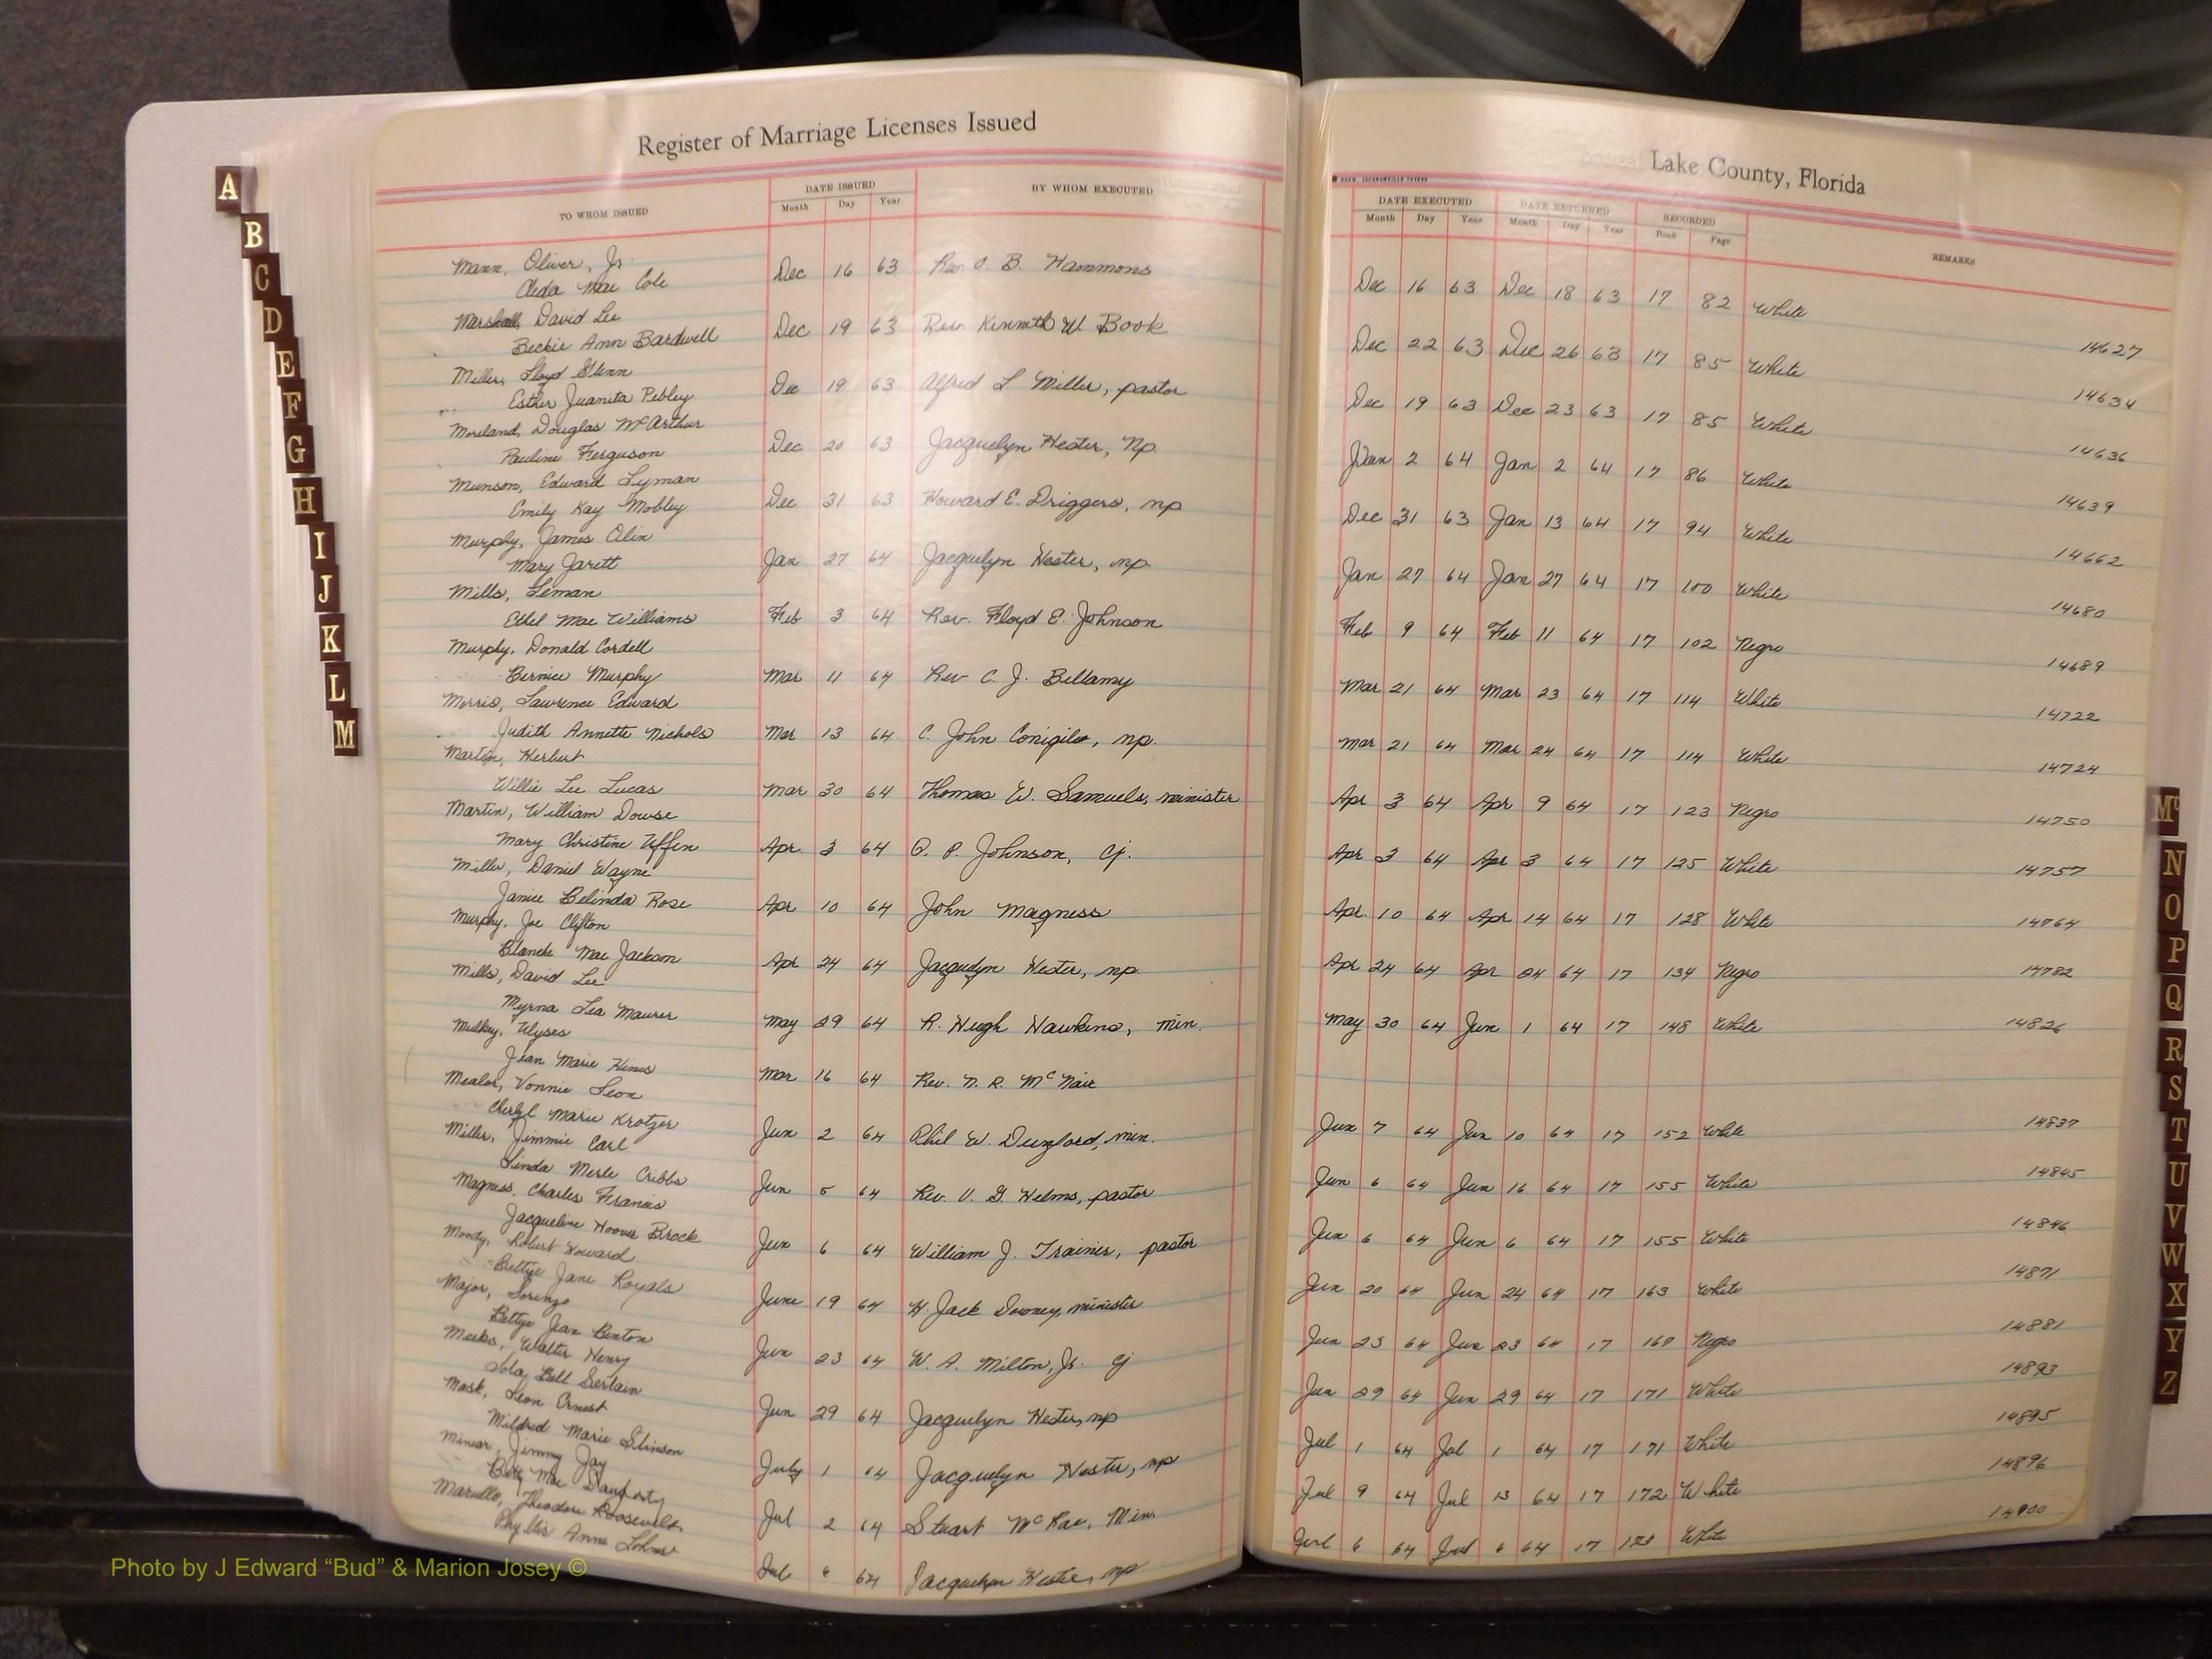 Register of Marriage Licenses Issued
Lake County, Florida
TO WHOM ISSUED
DATE ISSUED
Month Day Year
BY WHOM EXECUTED
DATE EXECUTED
Month Day Year
DATE RETURNED
Month Day Year
RECORDED
Book Page
REMARKS
Mann, Oliver, Jr.
Cleda Mae Cole
Dec 16 63 Rev. O. B. Hammons Dec 16 63 Dec 18 63 17 82 White 14627
Marshall, David Lee
Beckie Ann Bardwell
Dec 19 63 Rev. Kenneth W. Book Dec 22 63 Dec 26 63 17 85 White 14634
Miller, Lloyd Glenn
Esther Juanita Pebley
Dec 19 63 Alfred L Miller, pastor Dec 19 63 Dec 23 63 17 85 White 14636
Moreland, Douglas McArthur
Pauline Ferguson
Dec 20 63 Jacquelyn Hester, Np. Jan 2 64 Jan 2 64 17 86 White 14639
Munson, Edward Lyman
Emily Kay Mobley
Dec 31 63 Howard E. Driggers, np Dec 31 63 Jan 13 64 17 94 White 14662
Murphy, James Olin
Mary Jarett
Jan 27 64 Jacquelyn Hester, np. Jan 27 64 Jan 27 64 17 100 White 14680
Mills, Leman
Ethel Mae Williams
Feb 3 64 Rev. Floyd E. Johnson Feb 9 64 Feb 11 64 17 102 Negro 14689
Murphy, Donald Cordell
Bernice Murphy
Mar 11 64 Rev C. J. Bellamy Mar 21 64 Mar 23 64 17 114 White 14722
Morris, Lawrence Edward
Judith Annette Nichols
Mar 13 64 C. John Coniglio, np. Mar 21 64 Mar 24 64 17 114 White 14724
Martin, Herbert
Willie Lee Lucas
Mar 30 64 Thomas W. Samuels, minister Apr 3 64 Apr 9 64 17 123 Negro 14750
Martin, William Dowse
Mary Christine Uffen
Apr 3 64 P. Johnson, Cj. Apr 3 64 Apr 3 64 17 125 White 14757
Miller, Daniel Wayne
Janice Belinda Rose
Apr 10 64 John Magness Apr. 10 64 Apr 14 64 17 128 White 14764
Murphy, Joe Clifton
Blanche Mae Jackson
Apr 24 64 Jacquelyn Hester, np. Apr 24 64 Apr 24 64 17 134 Negro 14782
Mills, David Lee
Myrna Lea Maurer
May 29 64 R. Hugh Hawkins, min. May 30 64 Jun 1 64 17 148 White 14826
Mulkey, Ulyses
Jean Marie Hines
Mar 16 64 Rev. N. R. McNair
Mealor, Vonnie Leon
Cheryl Marie Krotzer
Jun 2 64 Phil W. min. Jun 7 64 Jun 10 64 17 152 White 14837
Miller, Jimmie Earl
Linda Merle Cribbs
Jun 5 64 Rev. V. G. Helms, pastor Jun 6 64 Jun 16 64 17 155 White 14845
Magness, Charles Francis
Jacqueline Hoover Brock
Jun 6 64 William J. Trainer, pastor Jun 6 64 Jun 6 64 17 155 White 14846
Moody, Robert Howard
Bettye Jane Royals
June 19 64 H. Jack Downey, minister Jun 20 64 Jun 24 64 17 163 White 14871
Major, Lorenzo
Bettye Jean Benton
Jun 23 64 W. A. Milton, Jr. Cj Jun 23 64 Jun 23 64 17 Negro 14881
Meeks, Walter Henry
Lola Bell Sertain
Jun 29 64 Jacquelyn Hester, np Jun 29 64 Jun 29 64 17 171 White 14893
Mask, Leon Ernest
Mildred Marie Stinson
July 1 64 Jacquelyn Hester, np Jul 1 64 Jul 1 64 17 171 White 14895
Minear, Jimmy Jay
Betty Mae
Jul 2 64 Stuart McRae, Min. Jul 9 64 Jul 13 64 17 172 White 14896
Marullo, Theodore Roosevelt
Phyllis Anne
Jul 6 64 Jacquelyn Hester, np Jul 6 64 Jul 6 64 17 White 14900
A
B
C
D
E
F
G
H
I
J
K
L
M
Mc
N
O
P
Q
R
S
T
U
V
W
X
Y
Z
Photo by J Edward “Bud” & Marion Josey ©